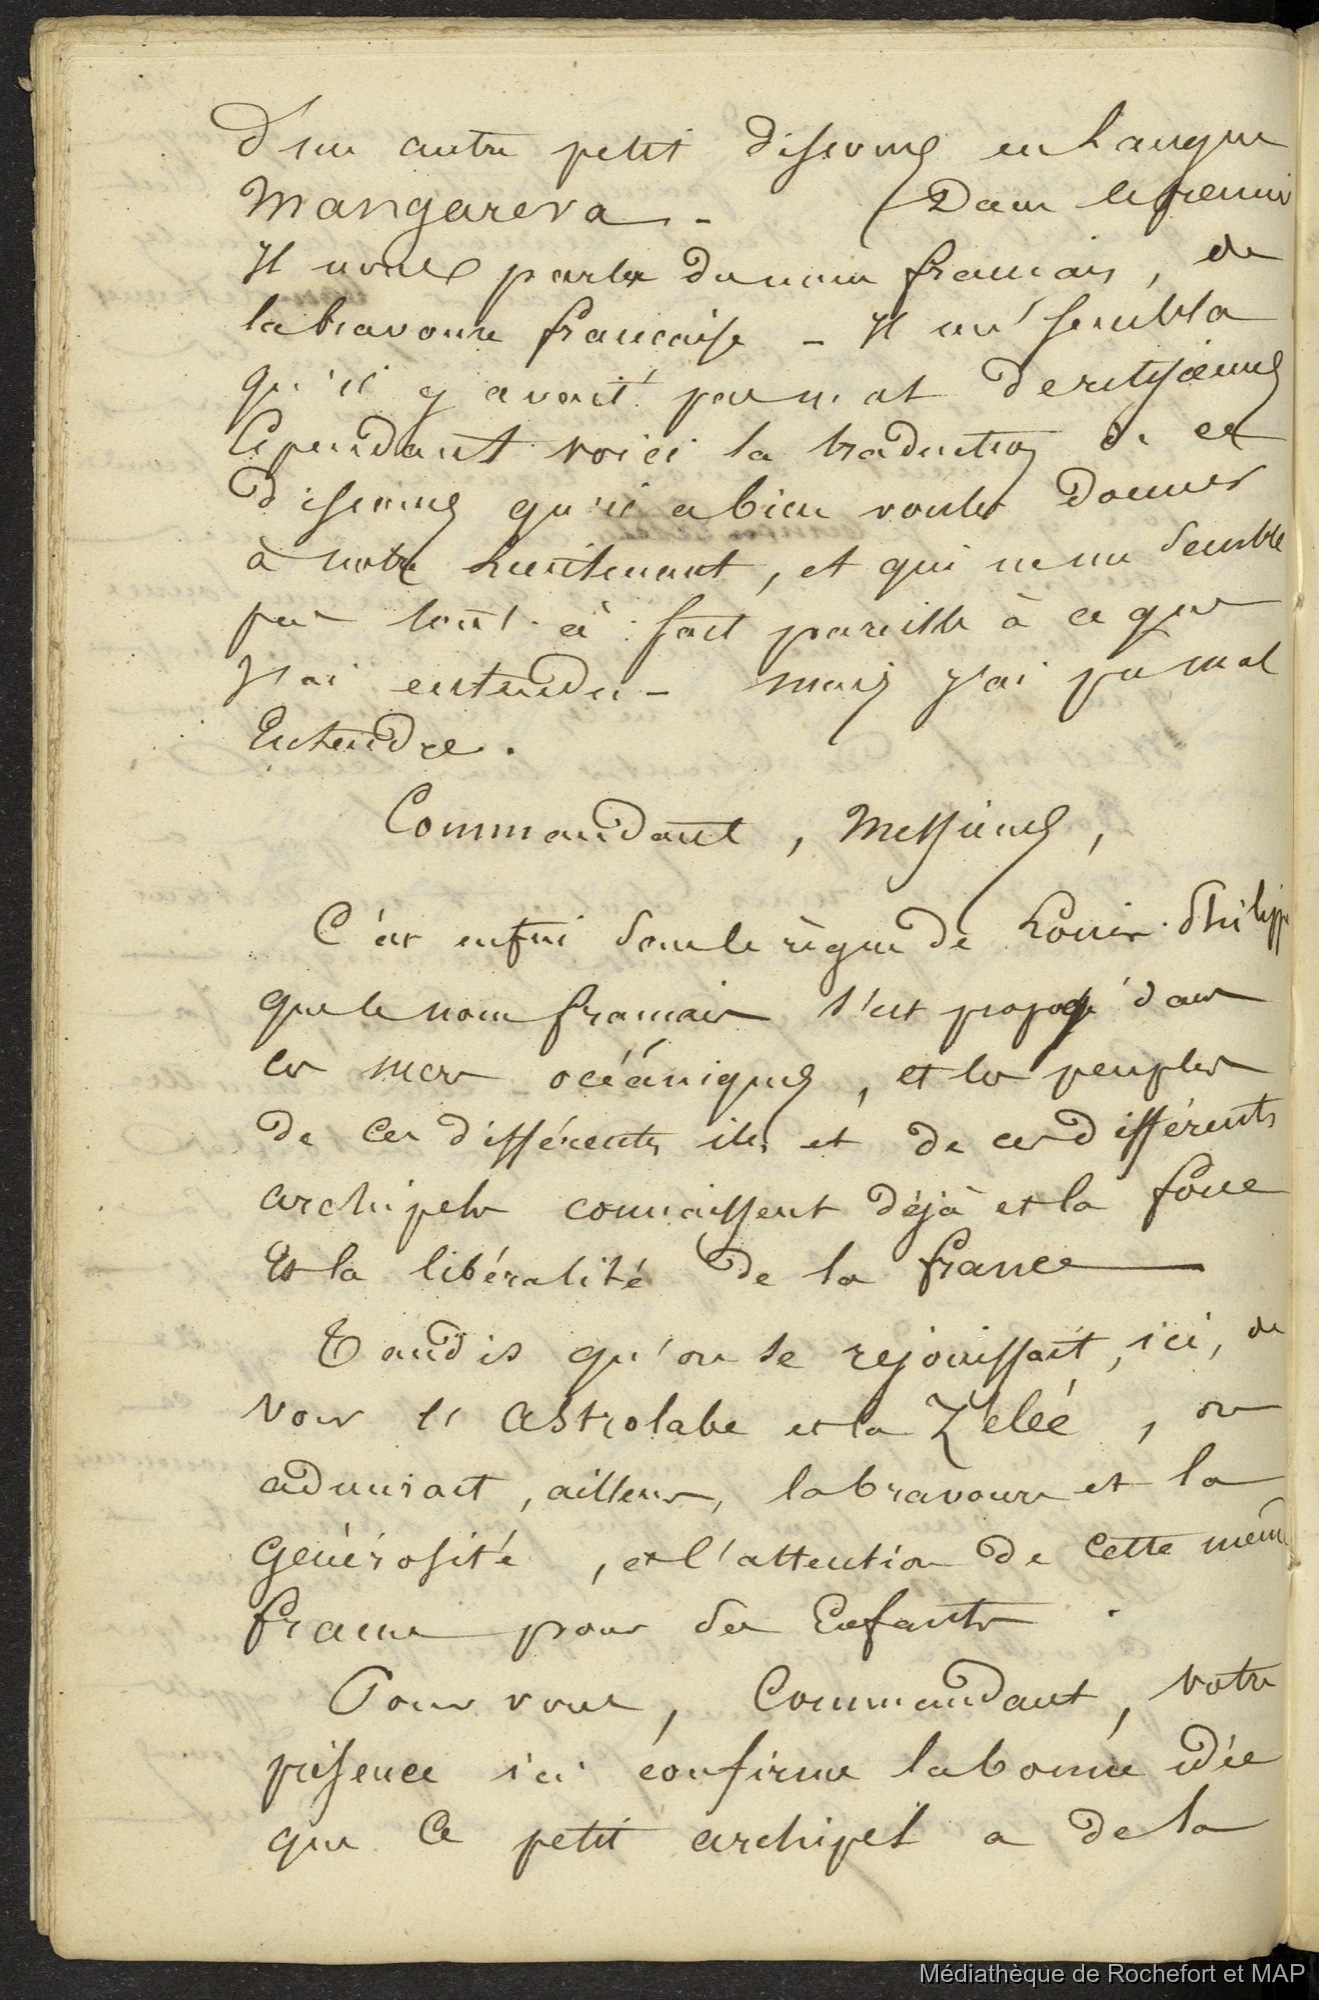 d'un autre petit discours en Langue
Mangareva - Dans le premier
Il nous parla du nom francais, de
la bravoure francaise - Il me sembla
qu'il y avait pas mal
Cependant voici la traduction de ce
discours qu'il a bien voulu donner
à notre Lieutenant, et qui ne me semble
pas tout-à-fait pareille à ce que
J'ai entendu - mais j'ai pu mal
Entendre.
Commandant, Messieurs,
C'est enfin sous le règne de Louis-Philippe
que le nom francais s'est propagé dans
ces mers océániques, et les peuples
de ces différentes iles et de ces différents
archipels connaissent déjà et la force
Et la libéralité de la france
Tandis qu'on se rejouissait, ici, de
voir l'Astrolabe et la Zélée, on
admirait, ailleurs, la bravoure et la
Générosité, et l'attention de cette même
france pour ses Enfants.
Pour vous, Commandant, votre
présence ici confirme la bonne idée
que ce petit archipel a de la
Médiathèque de Rochefort et MAP